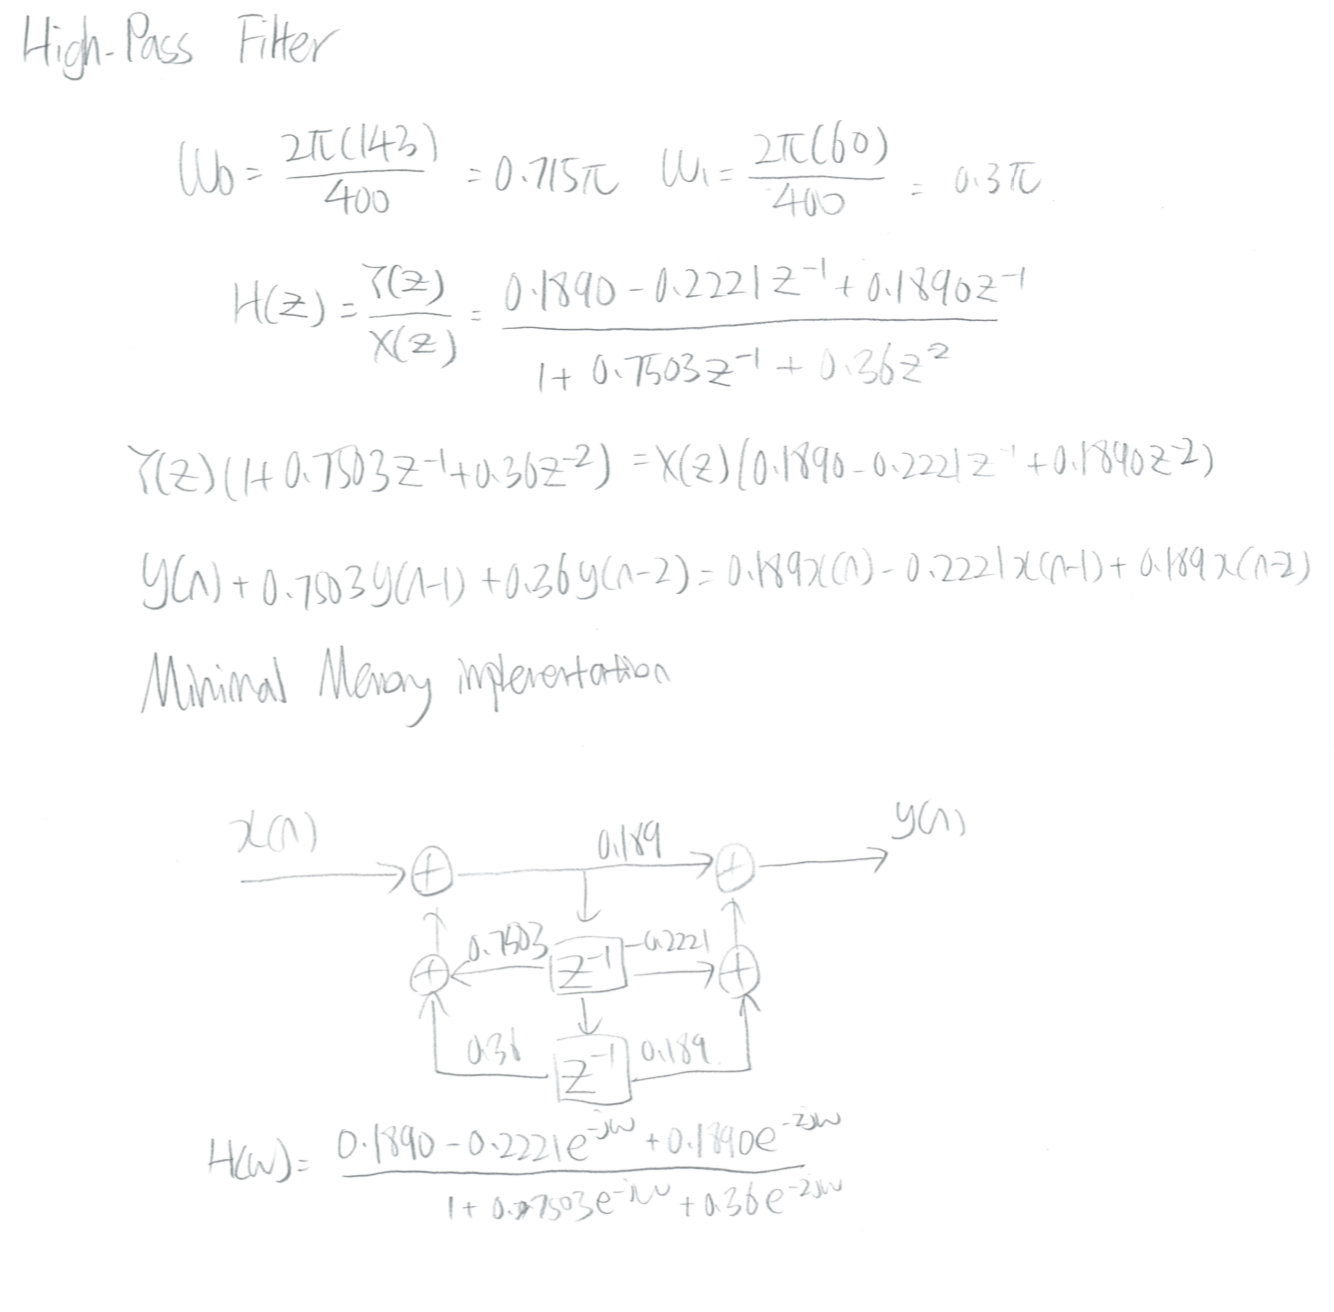 High-Pass Filter
ω₀ = 2π(143)/400 = 0.715π ω₁ = 2π(60)/400 = 0.3π
H(z) = Y(z)/X(z) = (0.1890 - 0.2221z⁻¹ + 0.1890z⁻¹)/(1 + 0.7503z⁻¹ + 0.36z²)
Y(z)(1+0.7503z⁻¹+0.36z⁻²) = X(z)(0.1890-0.2221z⁻¹+0.1890z⁻²)
y(n) + 0.7503y(n-1) + 0.36y(n-2) = 0.189x(n) - 0.2221x(n-1) + 0.189x(n-2)
Minimal Memory implementation
x(n) 0.189 y(n)
0.7503 z⁻¹ -0.2221
0.36 z⁻¹ 0.189
H(w) = (0.1890 - 0.2221e^-jw + 0.1890e^-2jw)/(1 + 0.7503e^-jw + 0.36e^-2jw)